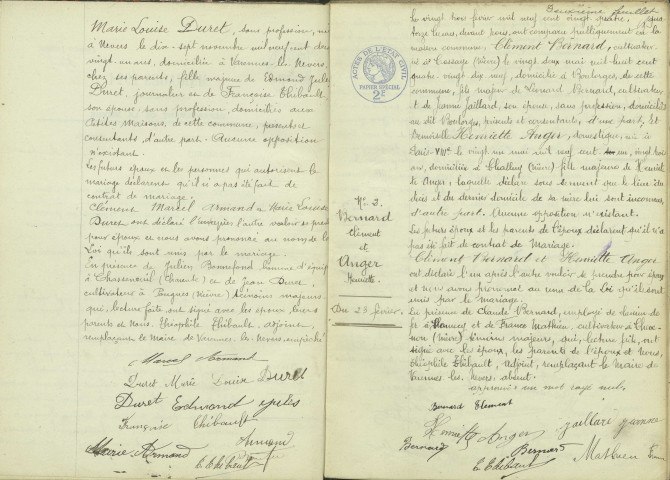 Marie Louise Duret, sans profession, née
à Nevers le dix-sept novembre mil neuf cent
vingt-un ans, domiciliée à Varennes-les-Nevers,
chez ses parents, fille majeure de Edmond Jules
Duret, journalier et de Françoise Thibault,
son épouse, sans profession, domiciliés aux
Petites Maisons, de cette commune, présents et
consentants, d'autre part. Aucune opposition
n'existant.
Les futurs époux et les personnes qui autorisent le
mariage déclarent qu'il n'a pas été fait de
contrat de mariage.
Clément Marcel Armand et Marie Louise
Duret, ont déclaré l'un après l'autre vouloir se prendre
pour époux et nous avons prononcé au nom de la
Loi qu'ils sont unis par le mariage.
En présence de Julien Bonnefond homme d'équipe
à Chasseneuil et de Jean Duret
cultivateur à Pougues (Nièvre) témoins majeurs
qui, lecture faite ont signé avec les époux, leurs
parents et Nous, Théophile Thibault, adjoint,
remplaçant le Maire de Varennes-les-Nevers, empêché.
Marcel Armand
Duret Marie Louise Duret
Duret Edmond Jules
Françoise Thibault
Armand
Marie Armand
T. Thibault
Deuxième feuillet
Le vingt trois février mil neuf cent vingt quatre,
onze heures, devant nous, ont comparu publiquement en la
maison commune: Clément Bernard, cultivateur,
né à Cessays (Nièvre) le vingt deux mai mil huit cent
quatre vingt dix neuf, domicilié à Boulorges, de cette
commune, fils majeur de Bernard, cultivateur
et de Jeanne Jaillard, son épouse, sans profession, domiciliés
au dit Boulorges, présents et consentants, d'une part, Et
Demoiselle Henriette Anger, domestique, née à
Paris VIIIe le vingt un mai mil neuf cent un, vingt deux
ans, domiciliée à Challuy (Nièvre) fille majeure de Henriette
Anger, laquelle déclare sous serment que le lieu du
décès et du dernier domicile de sa mère lui sont inconnus,
d'autre part. Aucune opposition n'existant.
Les futurs époux et les parents de l'époux déclarent qu'il n'a
pas été fait de contrat de Mariage.
Clément Bernard et Henriette Anger
ont déclaré l'un après l'autre vouloir se prendre pour époux
et nous avons prononcé au nom de la Loi qu'ils sont
unis par le mariage.
En présence de Claude Bernard, employé de chemin de
fer à et de France Mathieu, cultivateur à
(Nièvre) témoins majeurs, qui, lecture faite, ont
signé avec les époux, les parents de l'époux et Nous,
Théophile Thibault, Adjoint, remplaçant le Maire de
Varennes les Nevers absent.
approuvé un mot rayé nul.
Bernard Clément
Henriette Anger Jaillard Jeanne
Bernard Bernard Mathieu France
T. Thibault
ACTES DE L'ÉTAT CIVIL
PAPIER SPÉCIAL
2F
No 3.
Bernard
Clément
et
Anger
Henriette.
Du 23 février.